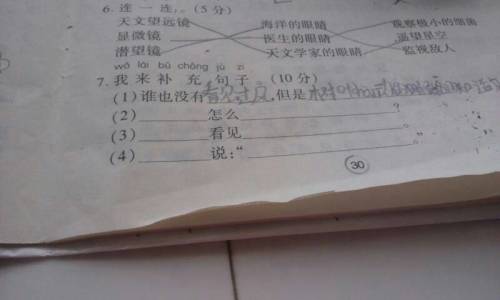 6. 连一连。(5分)
天文望远镜 海洋的眼睛 观察极小的细菌
显微镜 医生的眼睛 遥望星空
潜望镜 天文学家的眼睛 监视敌人
wǒ lái bǔ chōng jù zi
7. 我来补充句子 (10分)
(1) 谁也没有看见过,但是
(2)________怎么________?
(3)________看见________。
(4)________说:“________。”
30